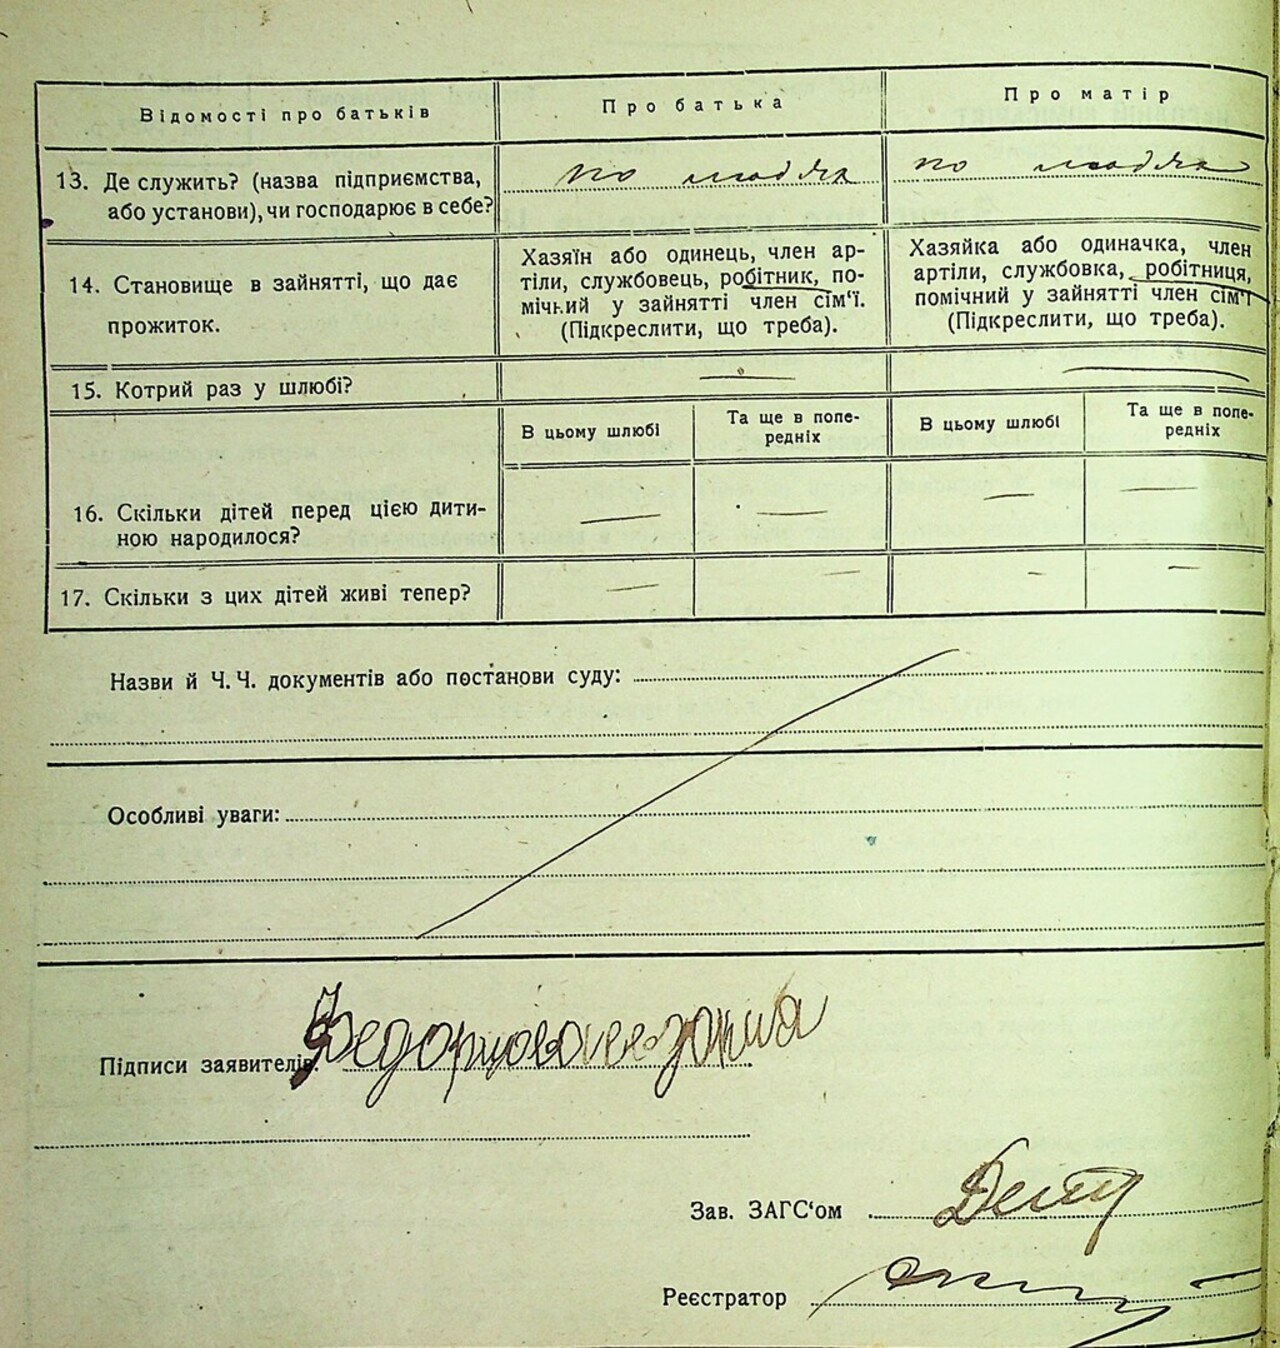 Відомості про батьків
Про батька
Про матір
13. Де служить? (назва підприємства,
або установи), чи господарює в себе?
по людях
по людях
14. Становище в зайнятті, що дає
прожиток.
Хазяїн або одинець, член ар-
тіли, службовець, робітник, по-
мічний у зайнятті член сім‘ї.
(Підкреслити, що треба).
Хазяйка або одиначка, член
артіли, службовка, робітниця,
помічний у зайнятті член сім‘ї
(Підкреслити, що треба).
15. Котрий раз у шлюбі?
—
—
В цьому шлюбі
Та ще в попе-
редніх
В цьому шлюбі
Та ще в попе-
редніх
16. Скільки дітей перед цією дити-
ною народилося?
— — — —
17. Скільки з цих дітей живі тепер?
— — — —
Назви й Ч. Ч. документів або постанови суду:
Особливі уваги:
Підписи заявителів:
Зав. ЗАГС‘ом
Реєстратор